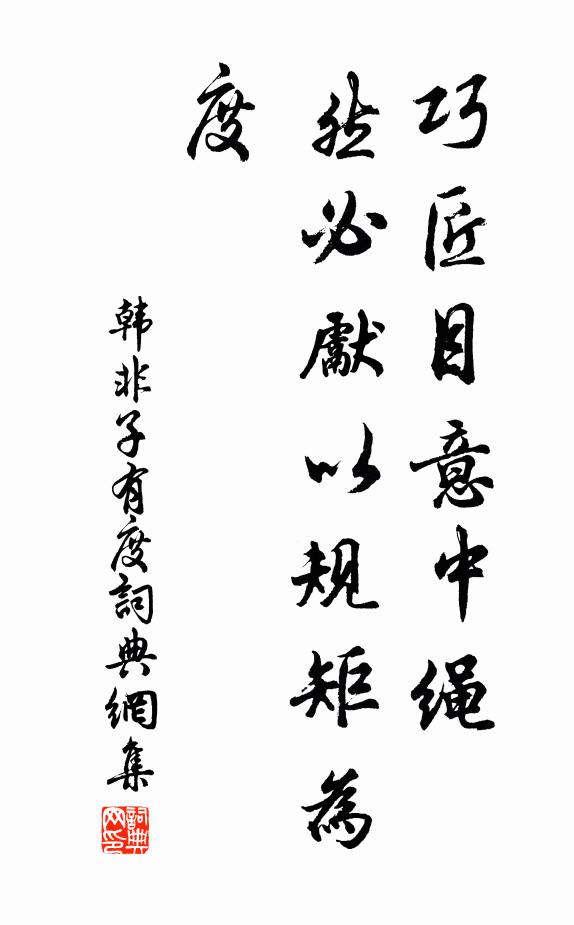 巧匠目意中绳
然必獻以规矩為
度
韩非子有度詞典網集
詞典
网印